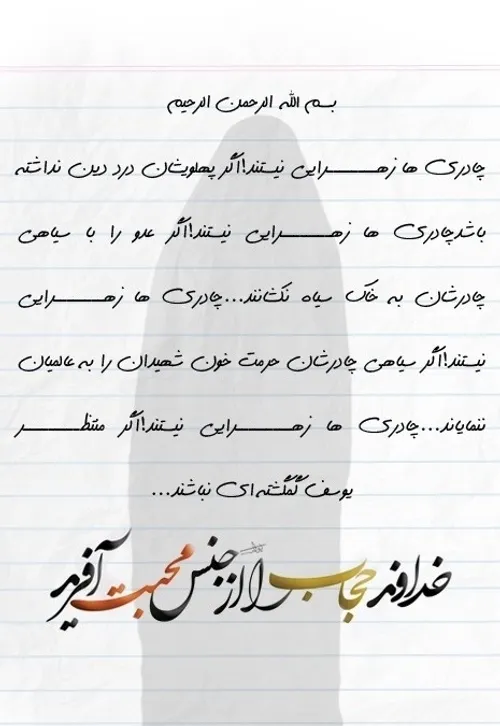 بسم الله الرحمن الرحیم
چادری ها زهـــــرایی نیستند!اگر پهلویشان درد دین نداشته
باشدچادری ها زهـــــرایی نیستند!اگر عدو را با سیاهی
چادرشان به خاک سیاه نکشانند...چادری ها زهـــــرایی
نیستند!اگر سیاهی چادرشان حرمت خون شهیدان را به عالمیان
ننمایاند...چادری ها زهـــــرایی نیستند!اگر منتظـــــر
یوسف گمگشته ای نباشند...
خداوند حجاب را از جنس محبت آفرید